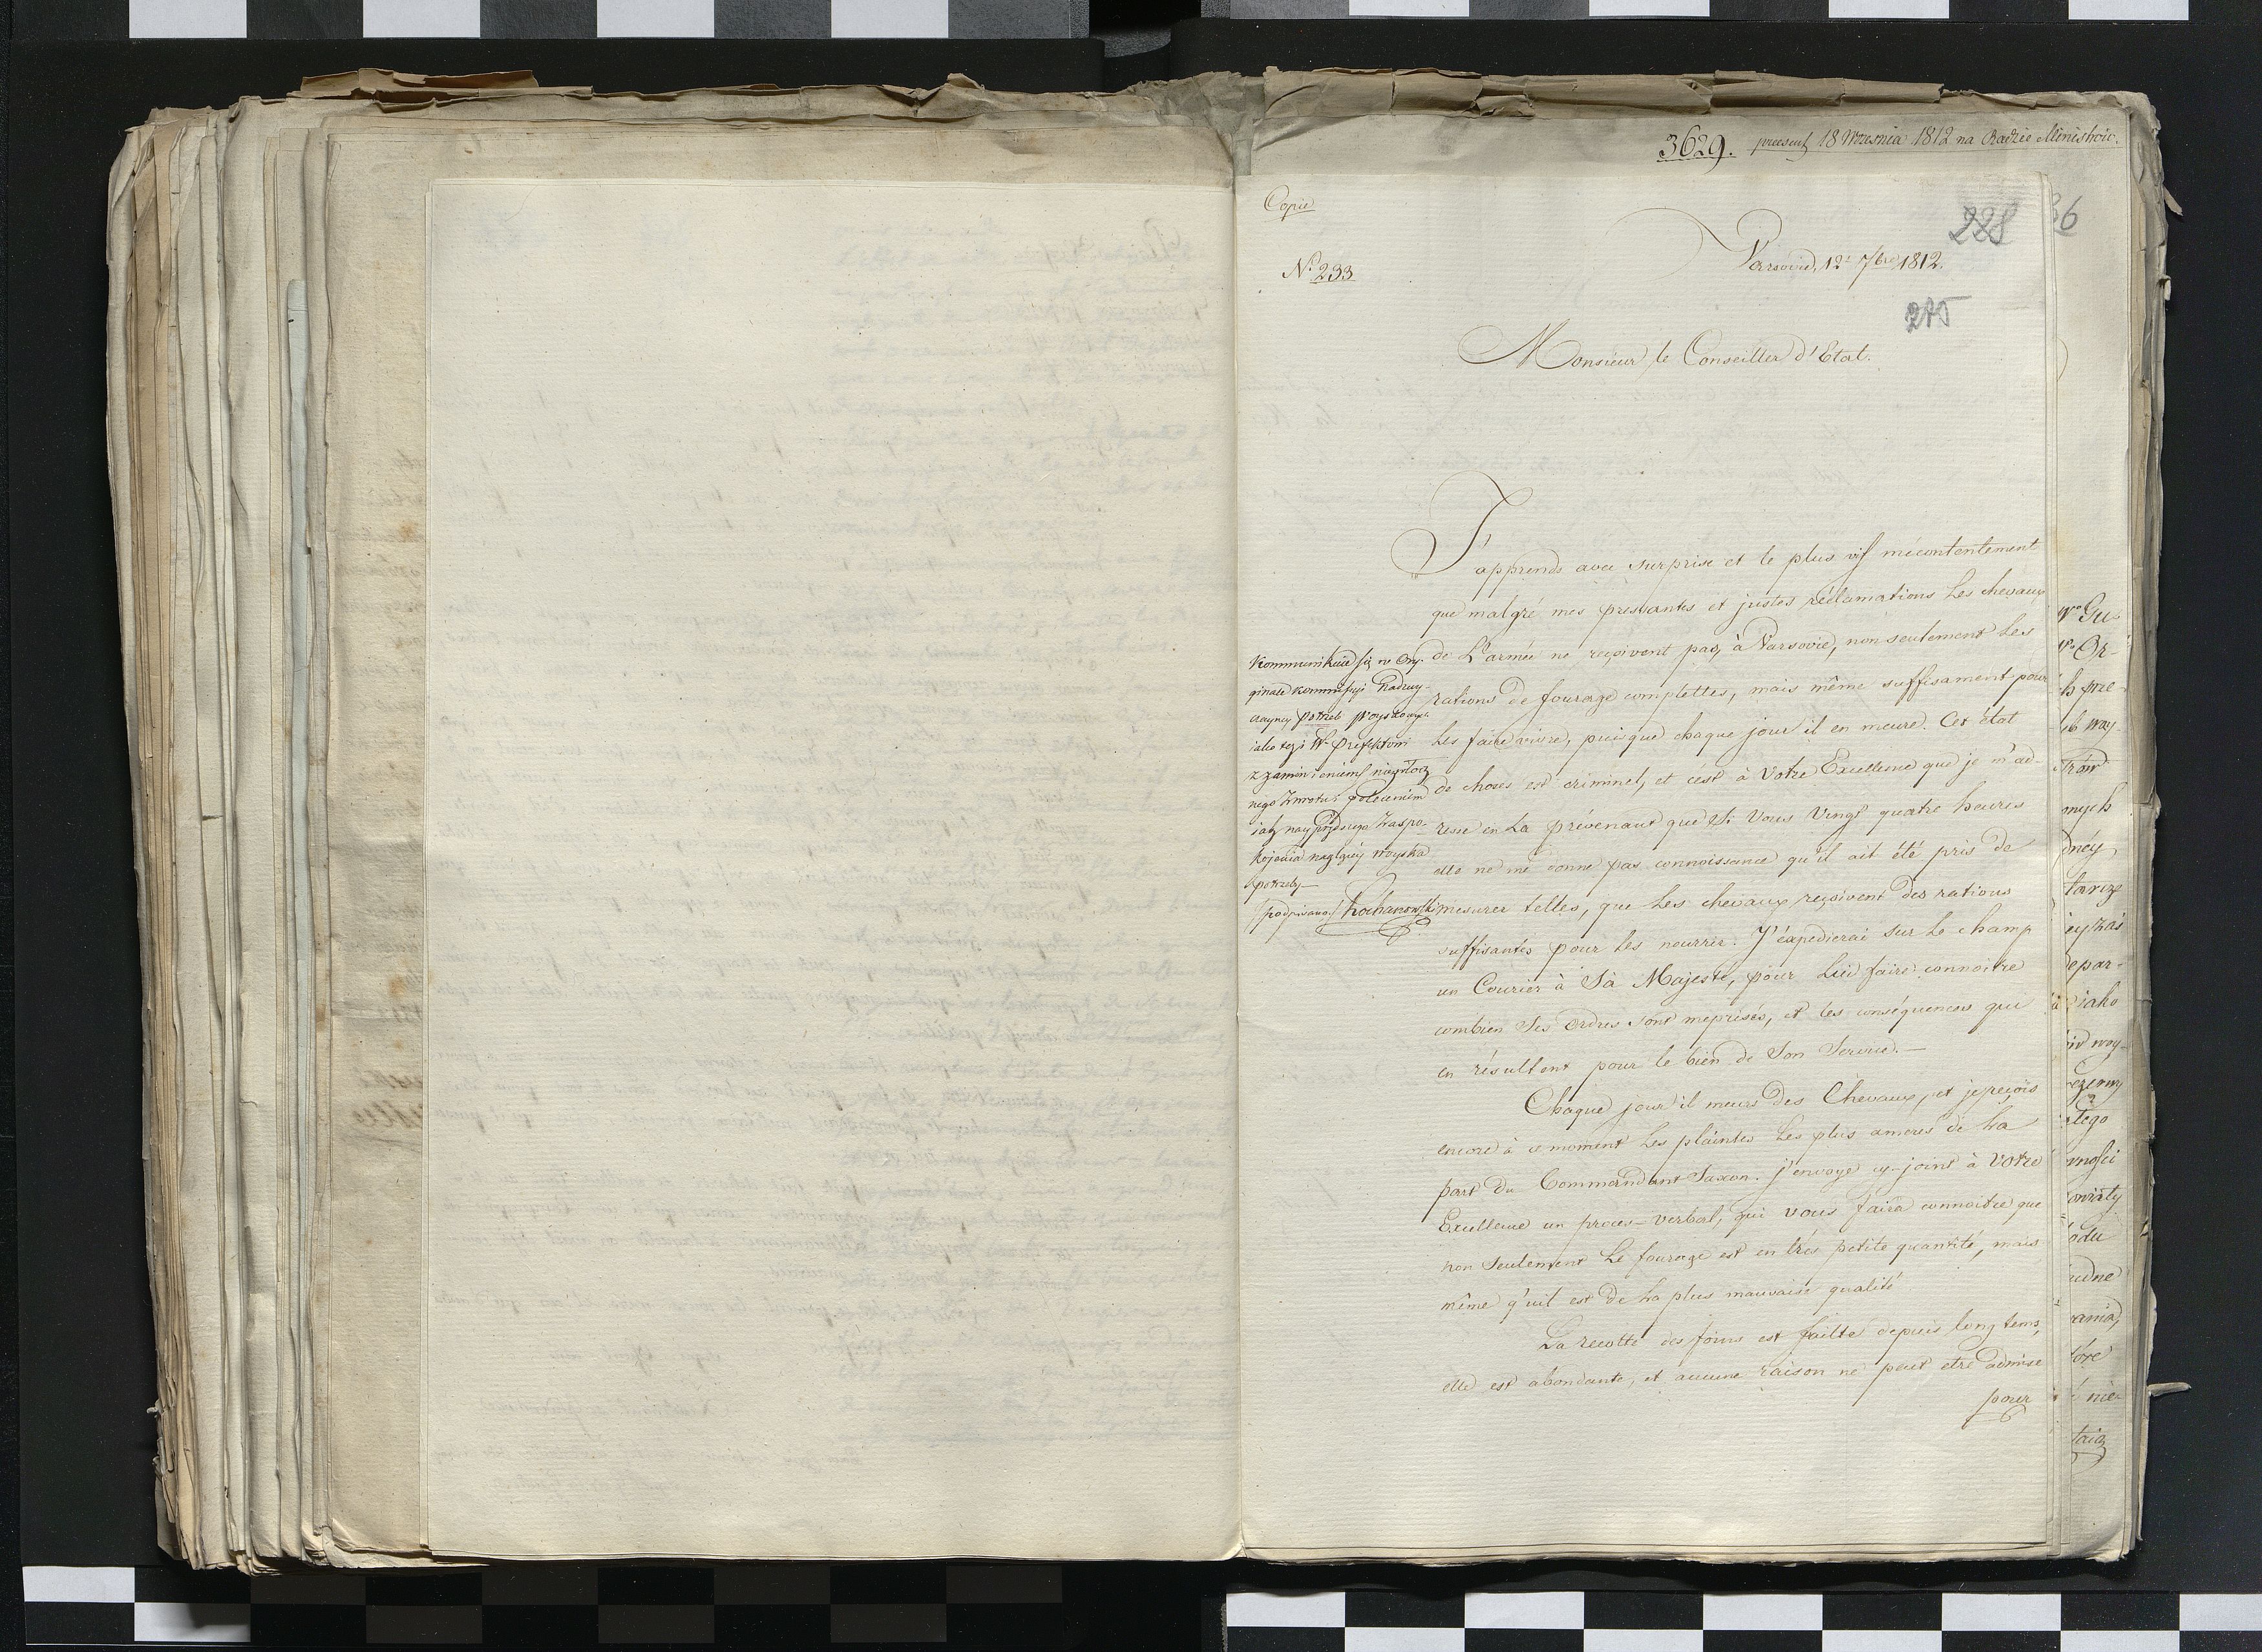 3629. præsent 18 Wrzesnia 1812 na Radzie Ministrów.
Copie
228
36
Varsovie, 12e 7bre 1812.
No 233
275
Monsieur le Conseiller d'Etat.
J'apprends avec surprise et le plus vif mécontentement
que malgré mes pressantes et justes réclamations Les chevaux
de L'armée ne reçoivent pas, à Varsovie, non seulement Les
rations de fourage complettes, mais même suffisament pour
Les faire vivre, puisque chaque jour il en meure. Cet état
de choses est criminel, et c'est à Votre Excellence que je m'ad-
resse en La prévenant que Si Vous Vingt quatre heures
elle ne me donne pas connoissance qu'il ait été pris de
mesures telles, que Les chevaux reçoivent des rations
suffisantes pour les nourrir. J'éxpedierai sur Le champ
un Courier à Sà Majesté, pour Lui faire connoitre
combien Ses Ordres sont meprisés, et les conséquences qui
en résultent pour le bien de Son Service.—
Kommunikuie się w Ory-
ginale Kommissyi Nadzwy-
czayney Potrzeb Woyskowych
iako też i W. Prefektowi
z
nego zwrotu i poleceniem
zaspo-
kojenia nagłéy woyska
potrzeby—
/podpisano/ Kochanowski
Chaque jour il meurt des Chevaux, et je reçois
encore à ce moment Les plaintes Les plus ameres de La
part du Commandant Saxon. j'envoye cy-joint à Votre
Excellence un proces-verbal, qui vous faira connoitre que
non Seulement Le fourage est en trés petite quantité, mais
même q'uil est de La plus mauvaise qualité
La recolte des foins est faitte depuis long tems,
elle est abondante, et aucune raison ne peut etre admise
pour